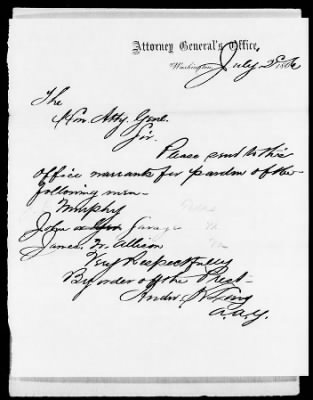 Attorney General's Office,
Washington, July 2d 1866
The
Hon. Atty. Genl.
Sir.
Please send to this
office warrants for pardon of the
following men—
Murphy
John
James W. Allison
Very Respectfully
By order of the Prest—
Andw.